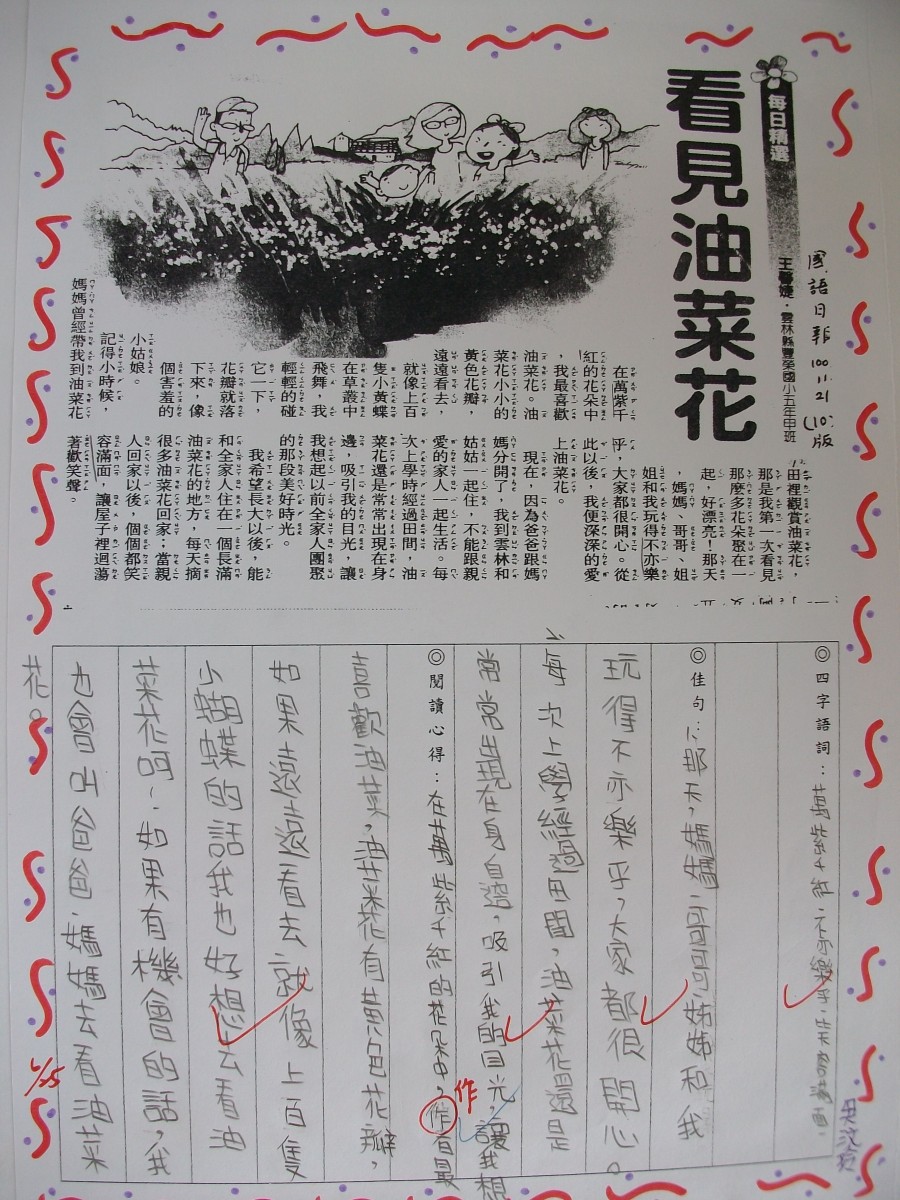 每日精選
看見油菜花
國語日報 100.11.21 (10)版
王馨婕・雲林縣豐榮國小五年甲班
在萬紫千
紅的花朵中
，我最喜歡
油菜花。油
菜花小小的
黃色花瓣，
遠遠看去，
就像上百
隻小黃蝶
在草叢中
飛舞，我
輕輕的碰
它一下，
花瓣就落
下來，像
個害羞的
小姑娘。
記得小時候，
媽媽曾經帶我到油菜花
田裡觀賞油菜花，
那是我第一次看見
那麼多花朵聚在一
起，好漂亮！那天
，媽媽、哥哥、姐
姐和我玩得不亦樂
乎，大家都很開心。從
此以後，我便深深的愛
上油菜花。
現在，因為爸爸跟媽
媽分開了，我到雲林和
姑姑一起住，不能跟親
愛的家人一起生活。每
次上學時經過田間，油
菜花還是常常出現在身
邊，吸引我的目光，讓
我想起以前全家人團聚
的那段美好時光。
我希望長大以後，能
和全家人住在一個長滿
油菜花的地方，每天摘
很多油菜花回家；當親
人回家以後，個個都笑
容滿面，讓屋子裡迴蕩
著歡笑聲。
◎四字語詞：萬紫千紅、不亦樂乎、笑容滿面、
◎佳句：1、那天，媽媽、哥哥、姊姊和我
玩得不亦樂乎，大家都很開心。
2、每次上學經過田間，油菜花還是
常常出現在身邊，吸引我的目光，讓我想
◎閱讀心得：在萬紫千紅的花朵中，作者最
作
喜歡油菜，油菜花有黃色花瓣，
如果遠遠看去就像上百隻
小蝴蝶的話我也好想去看油
菜花呵~如果有機會的話，我
也會叫爸爸、媽媽去看油菜
花。